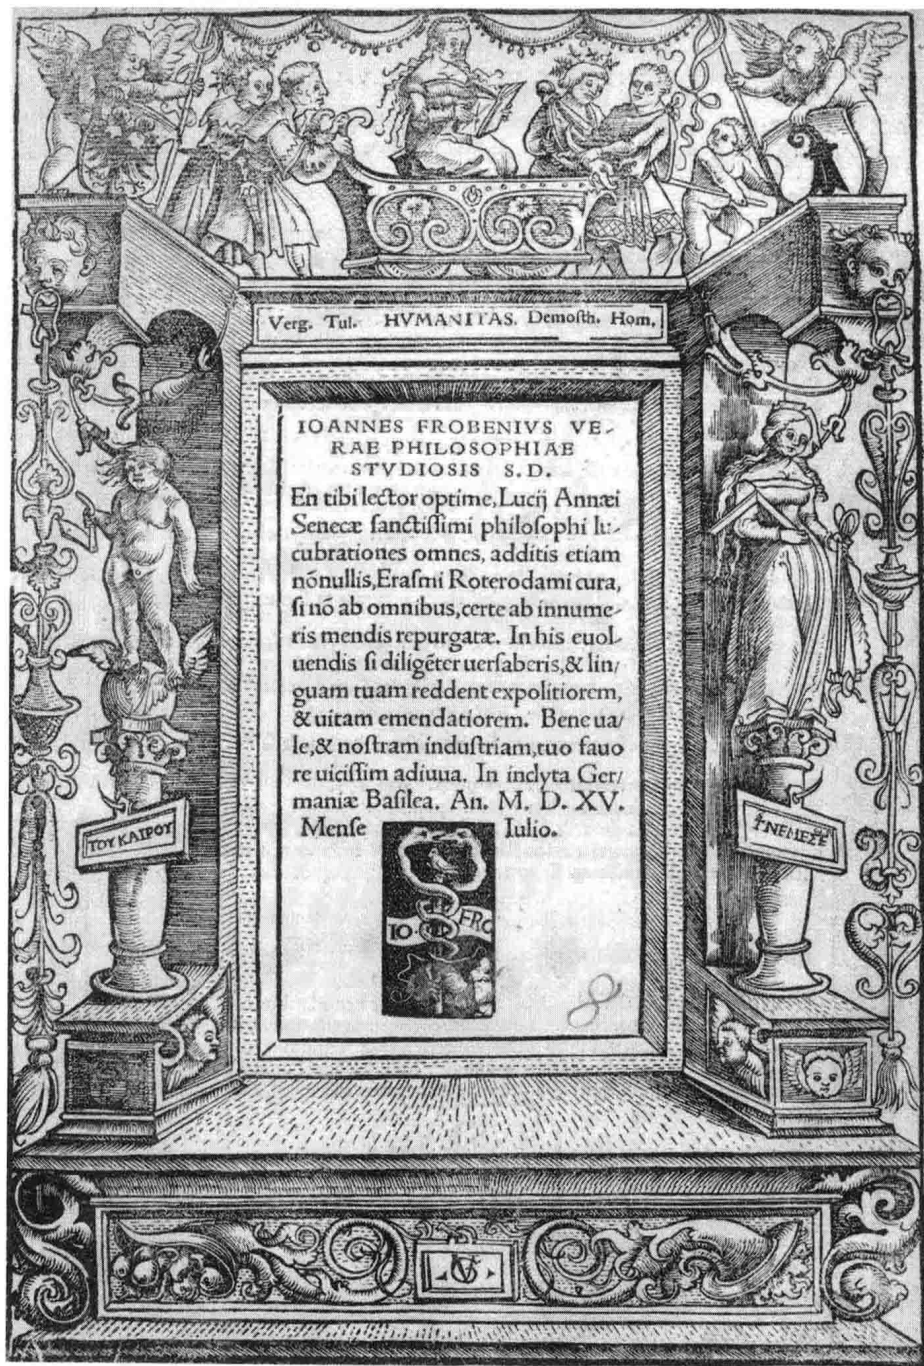 Verg. Tul. HVMANITAS. Demosth. Hom.
IOANNES FROBENIVS VE-
RAE PHILOSOPHIAE
STVDIOSIS S.D.
En tibi lector optime, Lucij Annæi
Senecæ sanctissimi philosophi lu-
cubrationes omnes, additis etiam
nōnullis, Erasmi Roterodami cura,
si nō ab omnibus, certe ab innume-
ris mendis repurgatæ. In his euol-
uendis si diligēter uersaberis, & lin/
guam tuam reddent expolitiorem,
& uitam emendatiorem. Bene ua/
le, & nostram industriam, tuo fauo
re uicissim adiuua. In inclyta Ger/
maniæ Basilea. An. M. D. XV.
Mense Iulio.
ΤΟΥ ΚΑΙΡΟΥ
IO FRO
8
VG